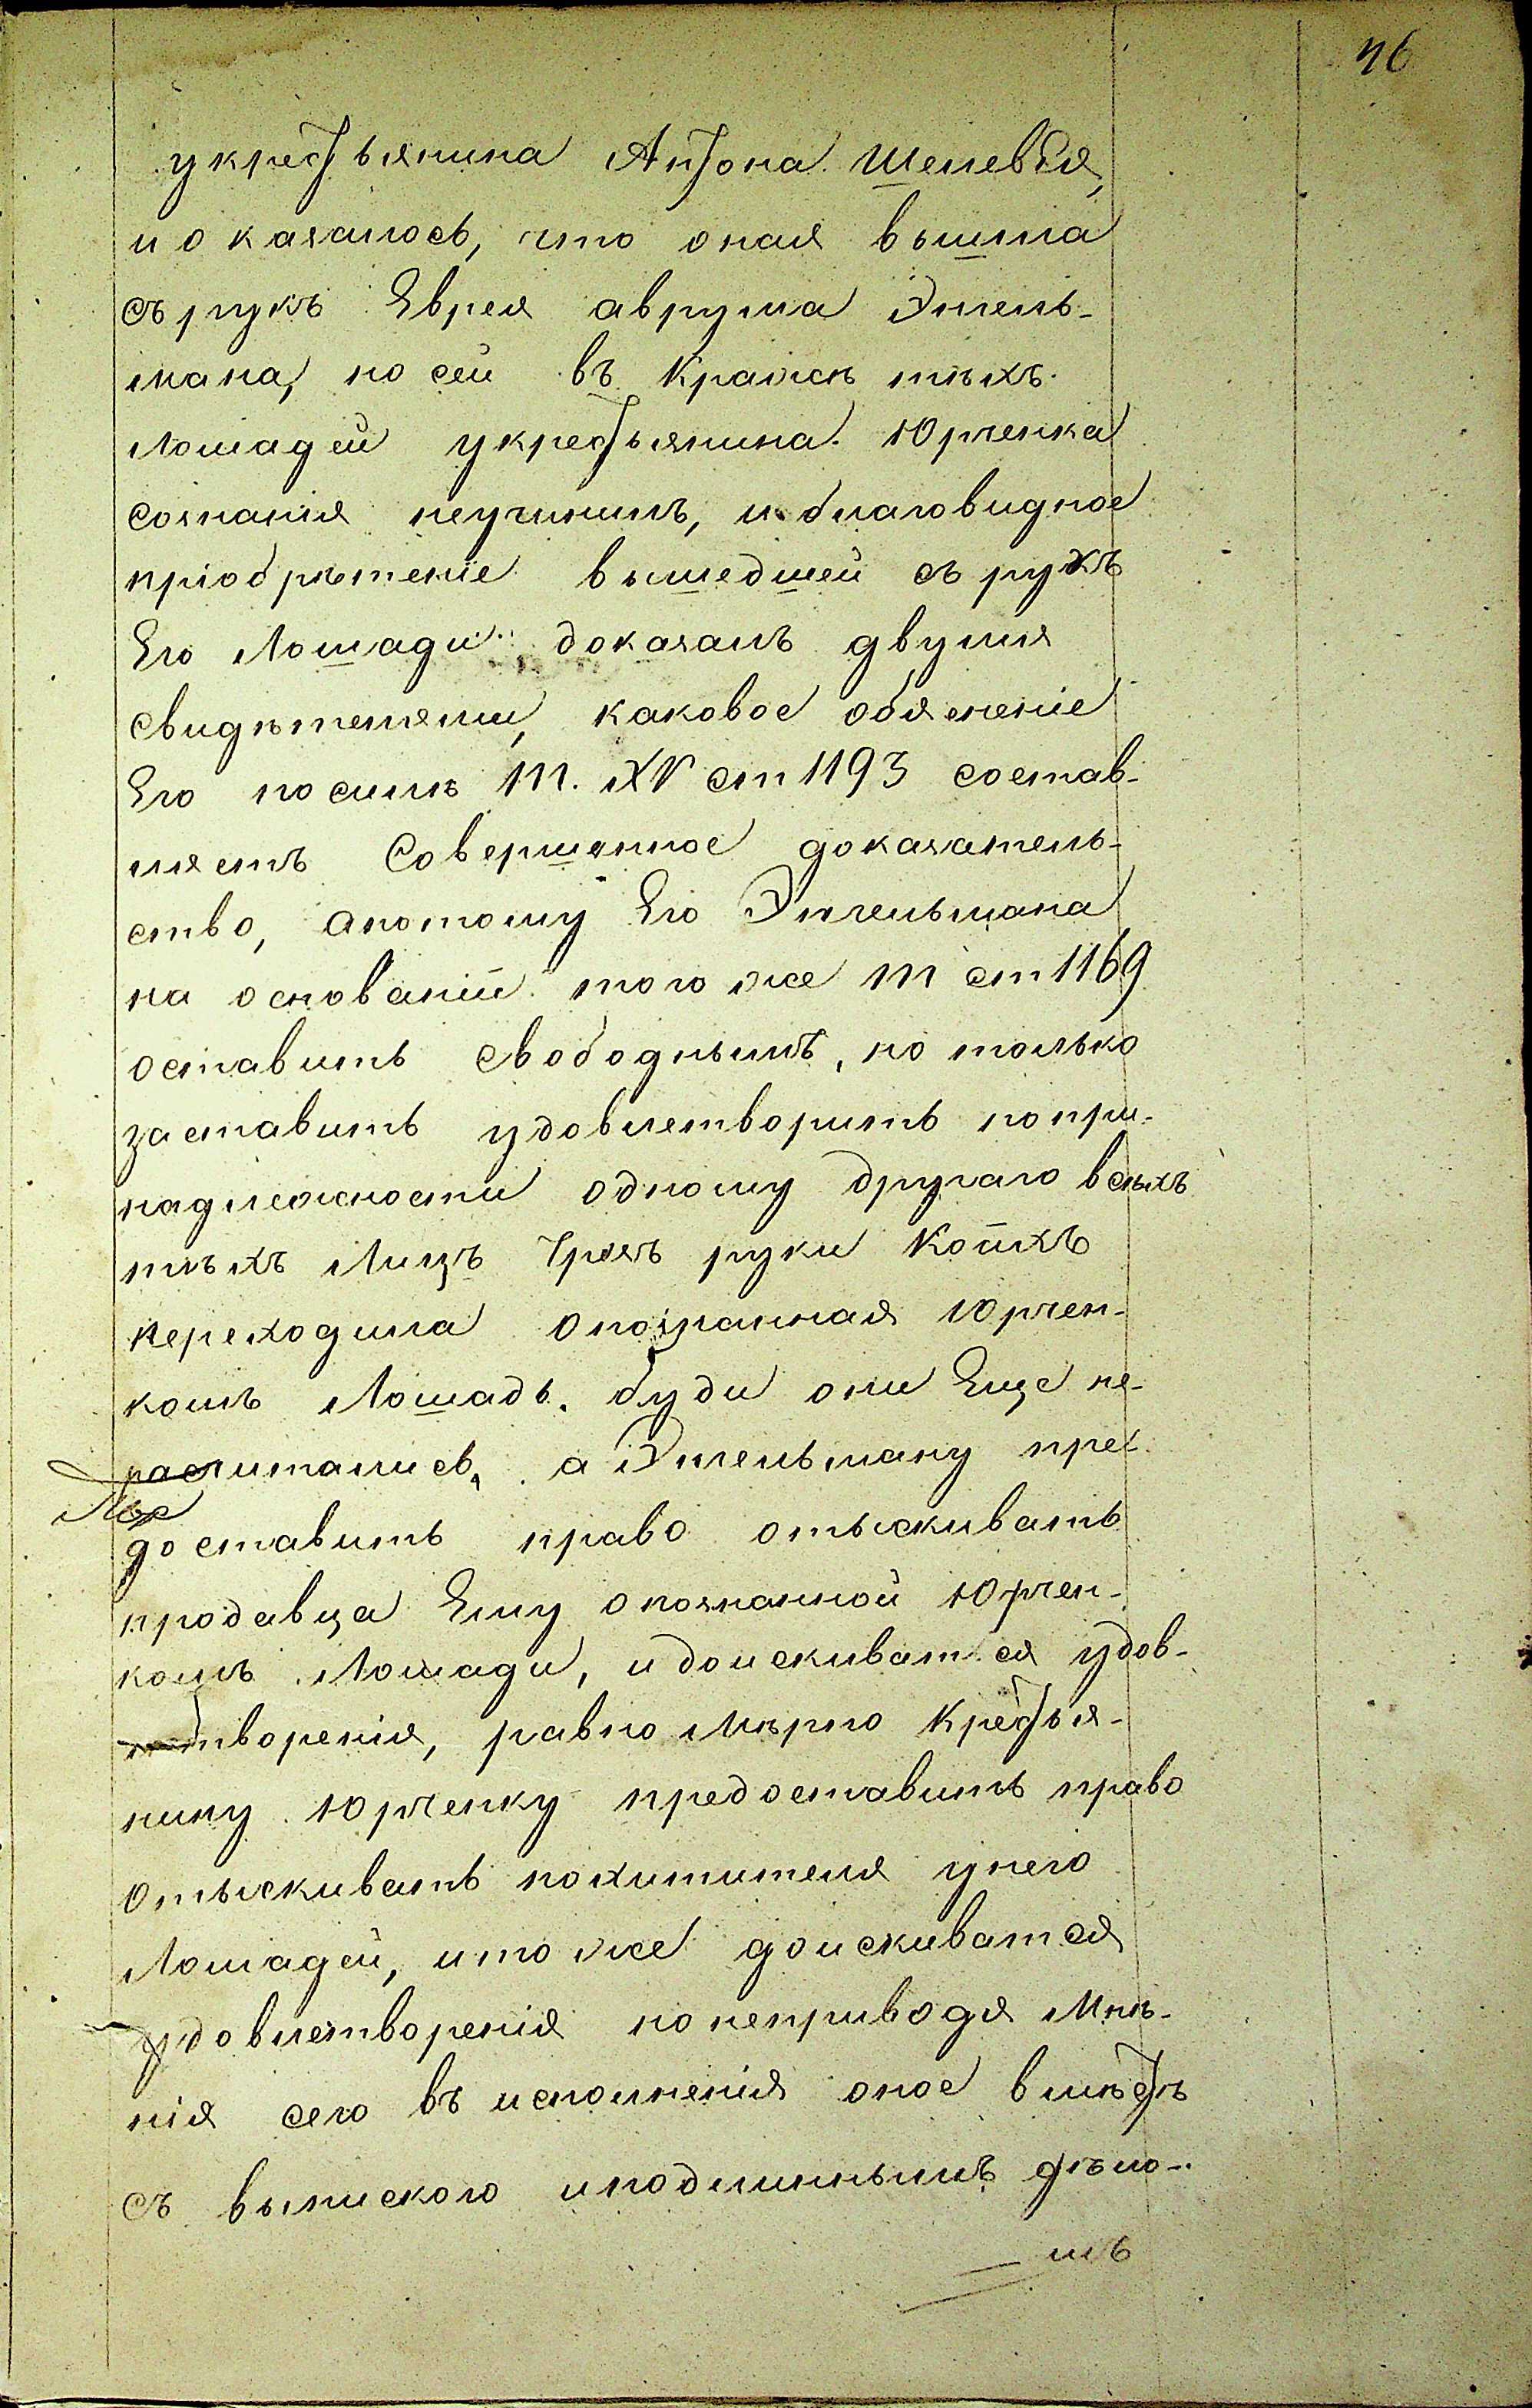 46
укрестьянина Антона Шелевея,
иоказалось, что оная вышла
съ рукъ Еврея аврума Этель-
мана, но сей въ Кражѣ тѣхъ
Лошадей укрестьянина Юрченка
сознанія неучинилъ, и благовидное
пріобрѣтеніе вышедшей съ рукъ
Его Лошади доказалъ двумя
свидѣтелями, каковое обясненіе
Его посилѣ т. XV ст 1193 состав-
ляетъ Совершенное доказатель-
ство, апотому Его Эительмана
на основаніи того же т ст 1169
оставить свободнымъ, но только
заставить удовлетворить попри-
надлежности одному другаго всѣхъ
тѣхъ Лицъ Чрезъ руки Коихъ
переходила опознанная Юрчен-
комъ Лошадь. буди они Еще не-
расчитались, а Эительману пре-
доставить право отыскивать
продавца Ему опознанной Юрчен-
комъ Лошади, и доискиватся удов-
творенія, равно мѣрно Крестья-
нину Юрченку предоставить право
Отыскивать похитителя унего
Лошадей, итоже доискиватся
удовлетворенія но неприводя Мнѣ-
нія сего въ исполненія оное вмѣстѣ
съ выпискою иподлиннымъ дѣло-
мъ